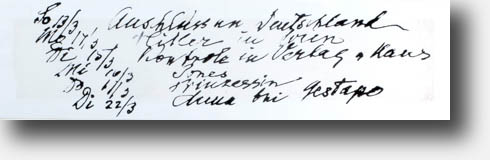 So 13/3 Anschluss an Deutschland
Mo 14/3 Hitler in Wien
Di 15/3 Kontrole in Verlag u Haus
Mi 16/3 Jones
Do 17/3 Prinzessin
Di 22/3 Anna bei Gestapo